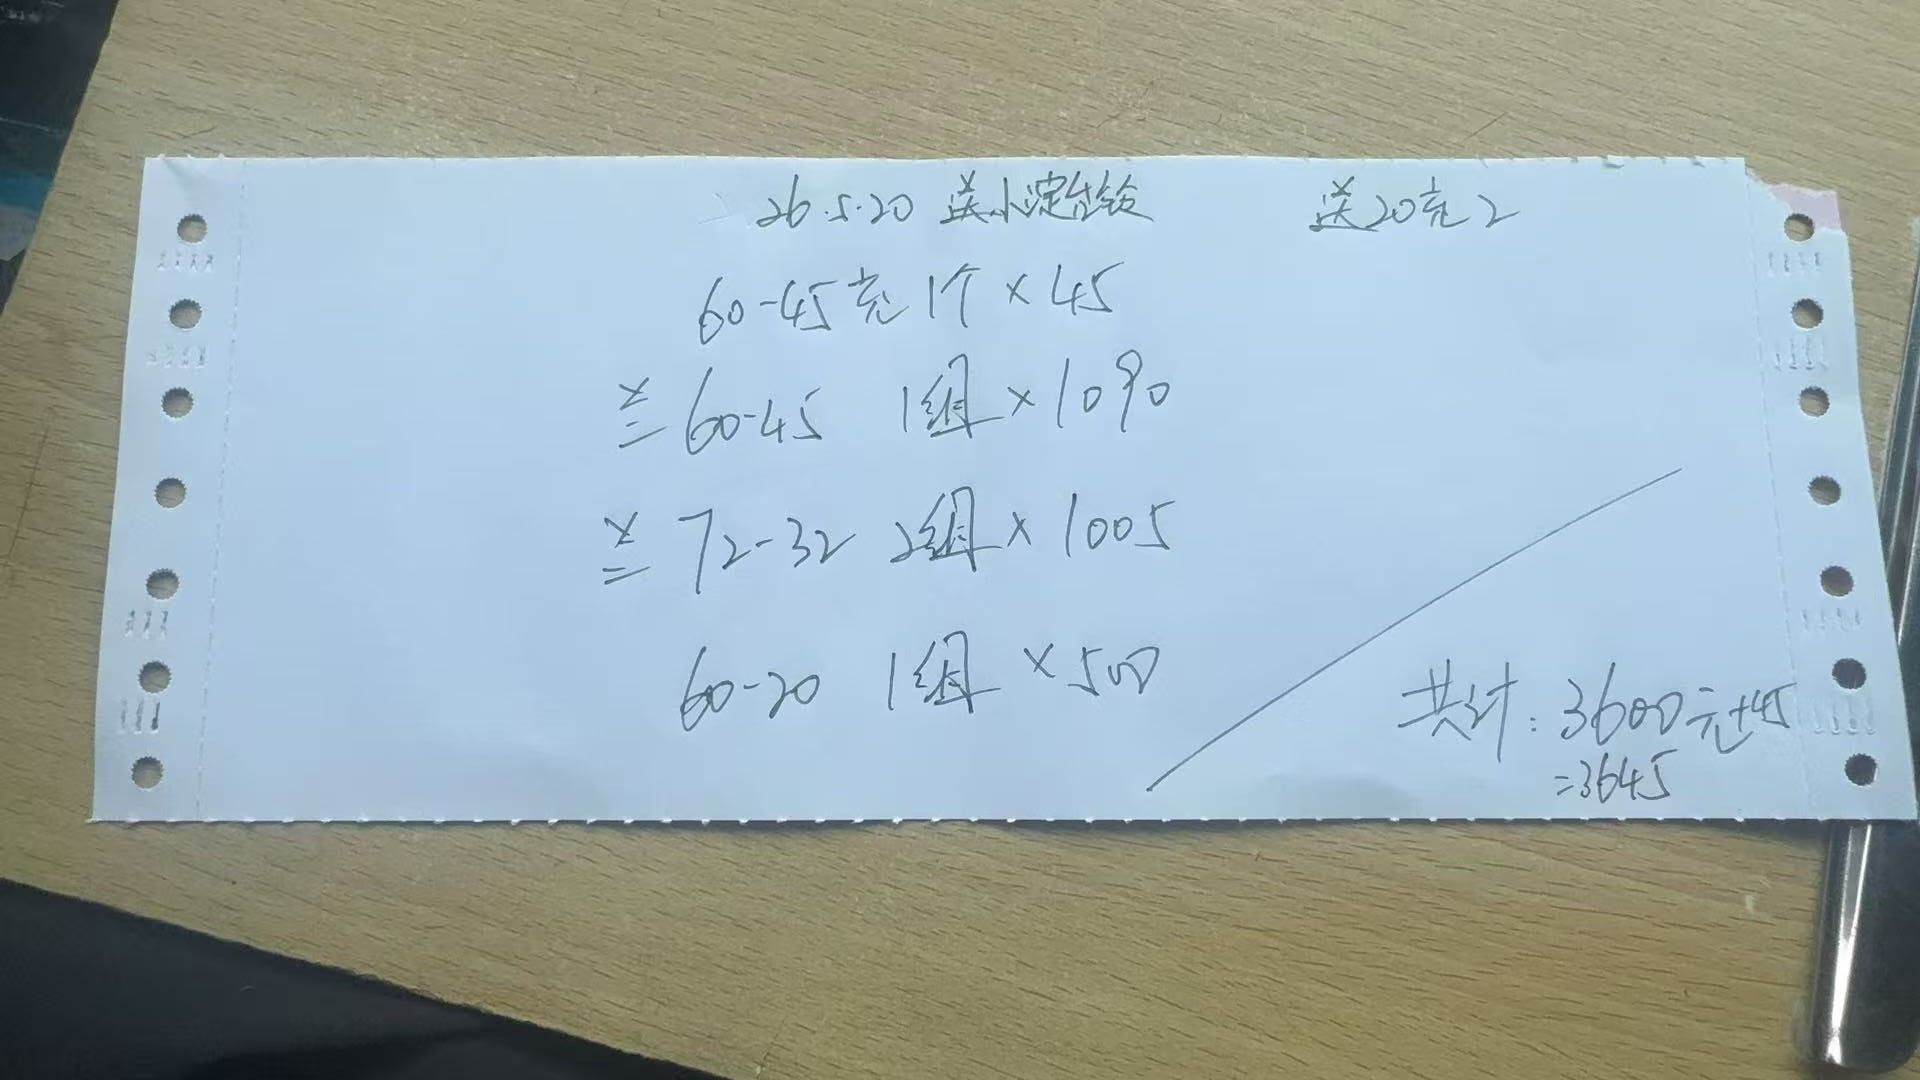 26.5.20 送小淀台铃 送20充2
60-45充 1个 × 45
60-45 1组 × 1090
72-32 2组 × 1005
60-20 1组 × 500
共计: 3600元+45
=3645